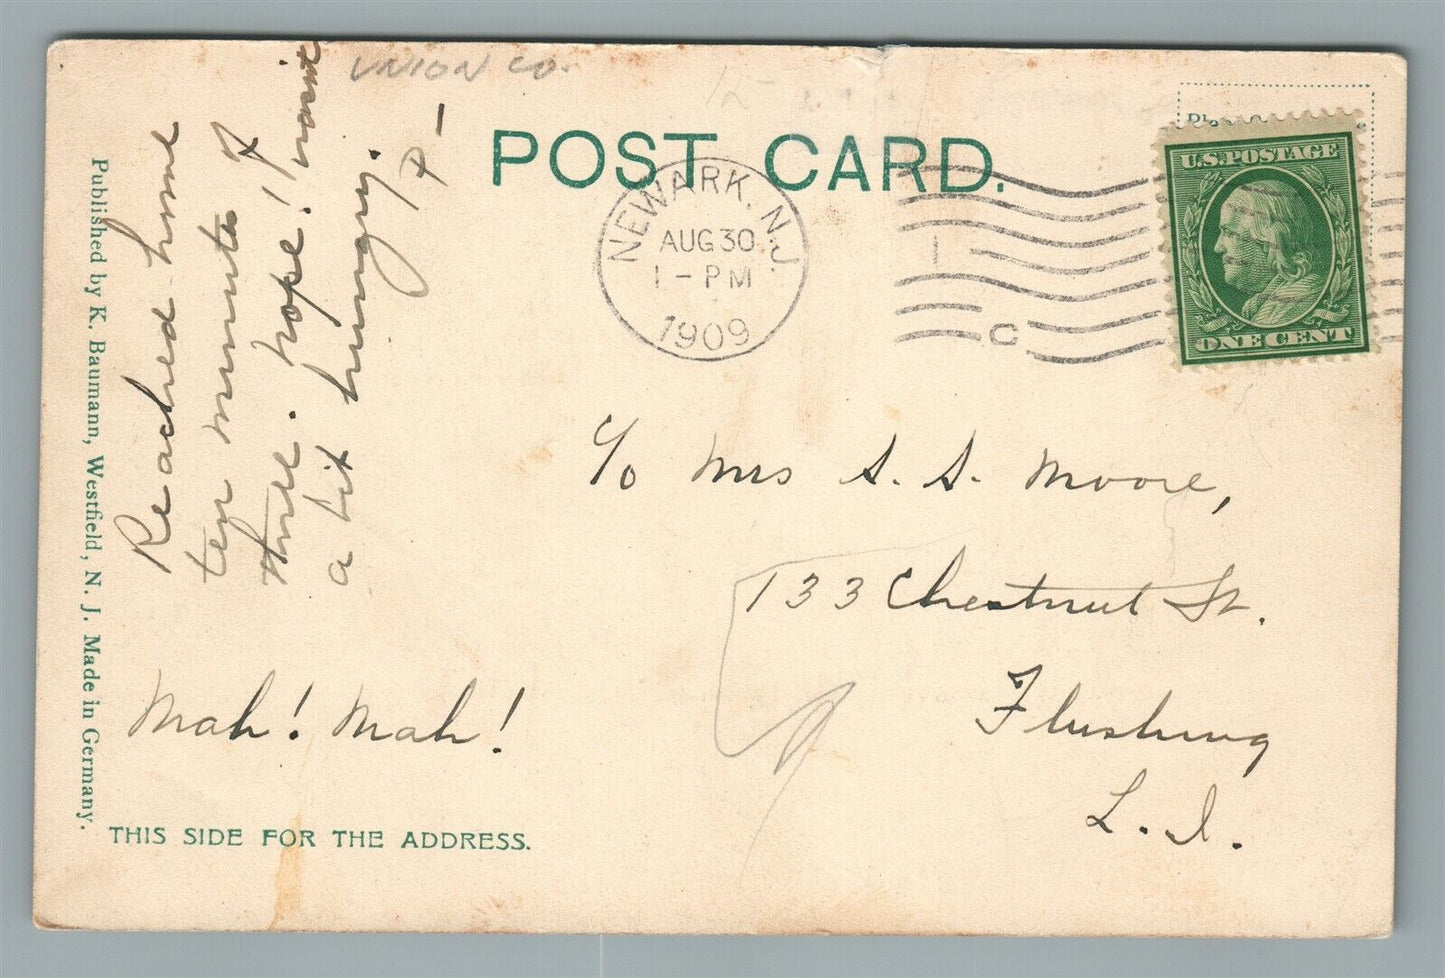 UNION CO.
POST CARD.
NEWARK, N.J.
AUG 30
1 - PM
1909
C
U.S. POSTAGE
ONE CENT
Reached home
ten minutes of
three. hope! I wasnt
a bit hungry.
P -
Mah! Mah!
c/o Mrs S. S. Moore,
133 Chestnut St.
Flushing
L. I.
Published by K. Baumann, Westfield, N. J. Made in Germany.
THIS SIDE FOR THE ADDRESS.